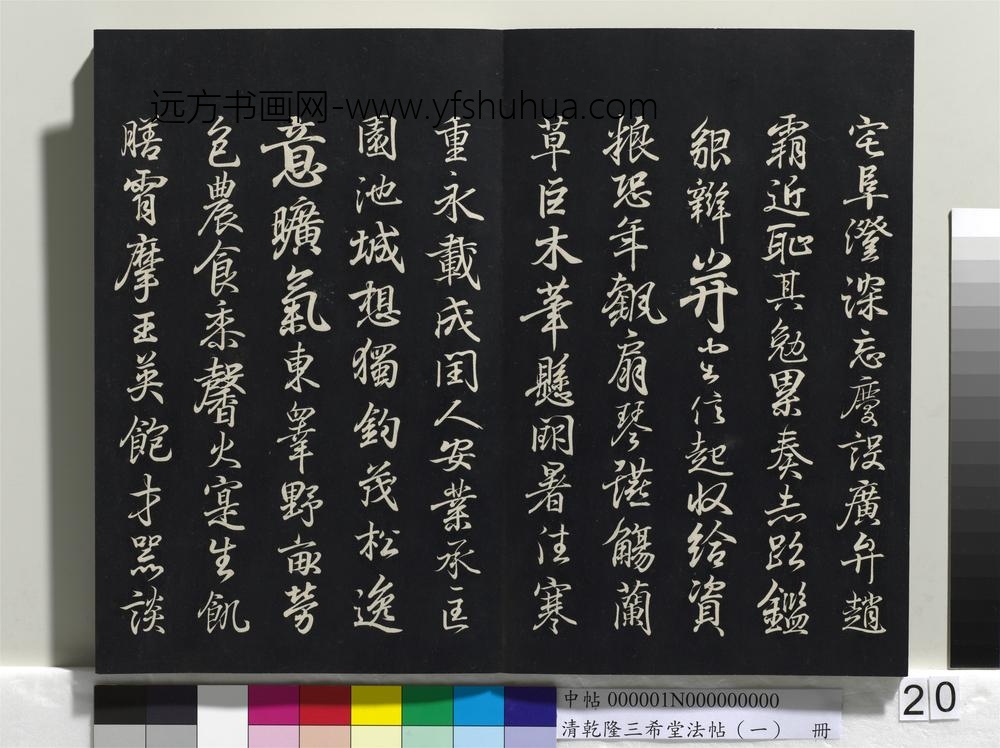 远方书画网-www.yfshuhua.com
宅阜澄深忘慶設廣弁趙
霸近恥其勉累奏志鑑
貌辨并信起收給資
粮恐年觀扇琴讌觴蘭
草巨木華懸朗暑往寒
重永載成閏人安業承匡
園池城想獨鈞茂松逸
意曠氣東皋野畝勞
包農食黍馨火寔生飢
膳宵摩王英飽才器談
中帖 000001N000000000
清乾隆三希堂法帖（一） 冊
20